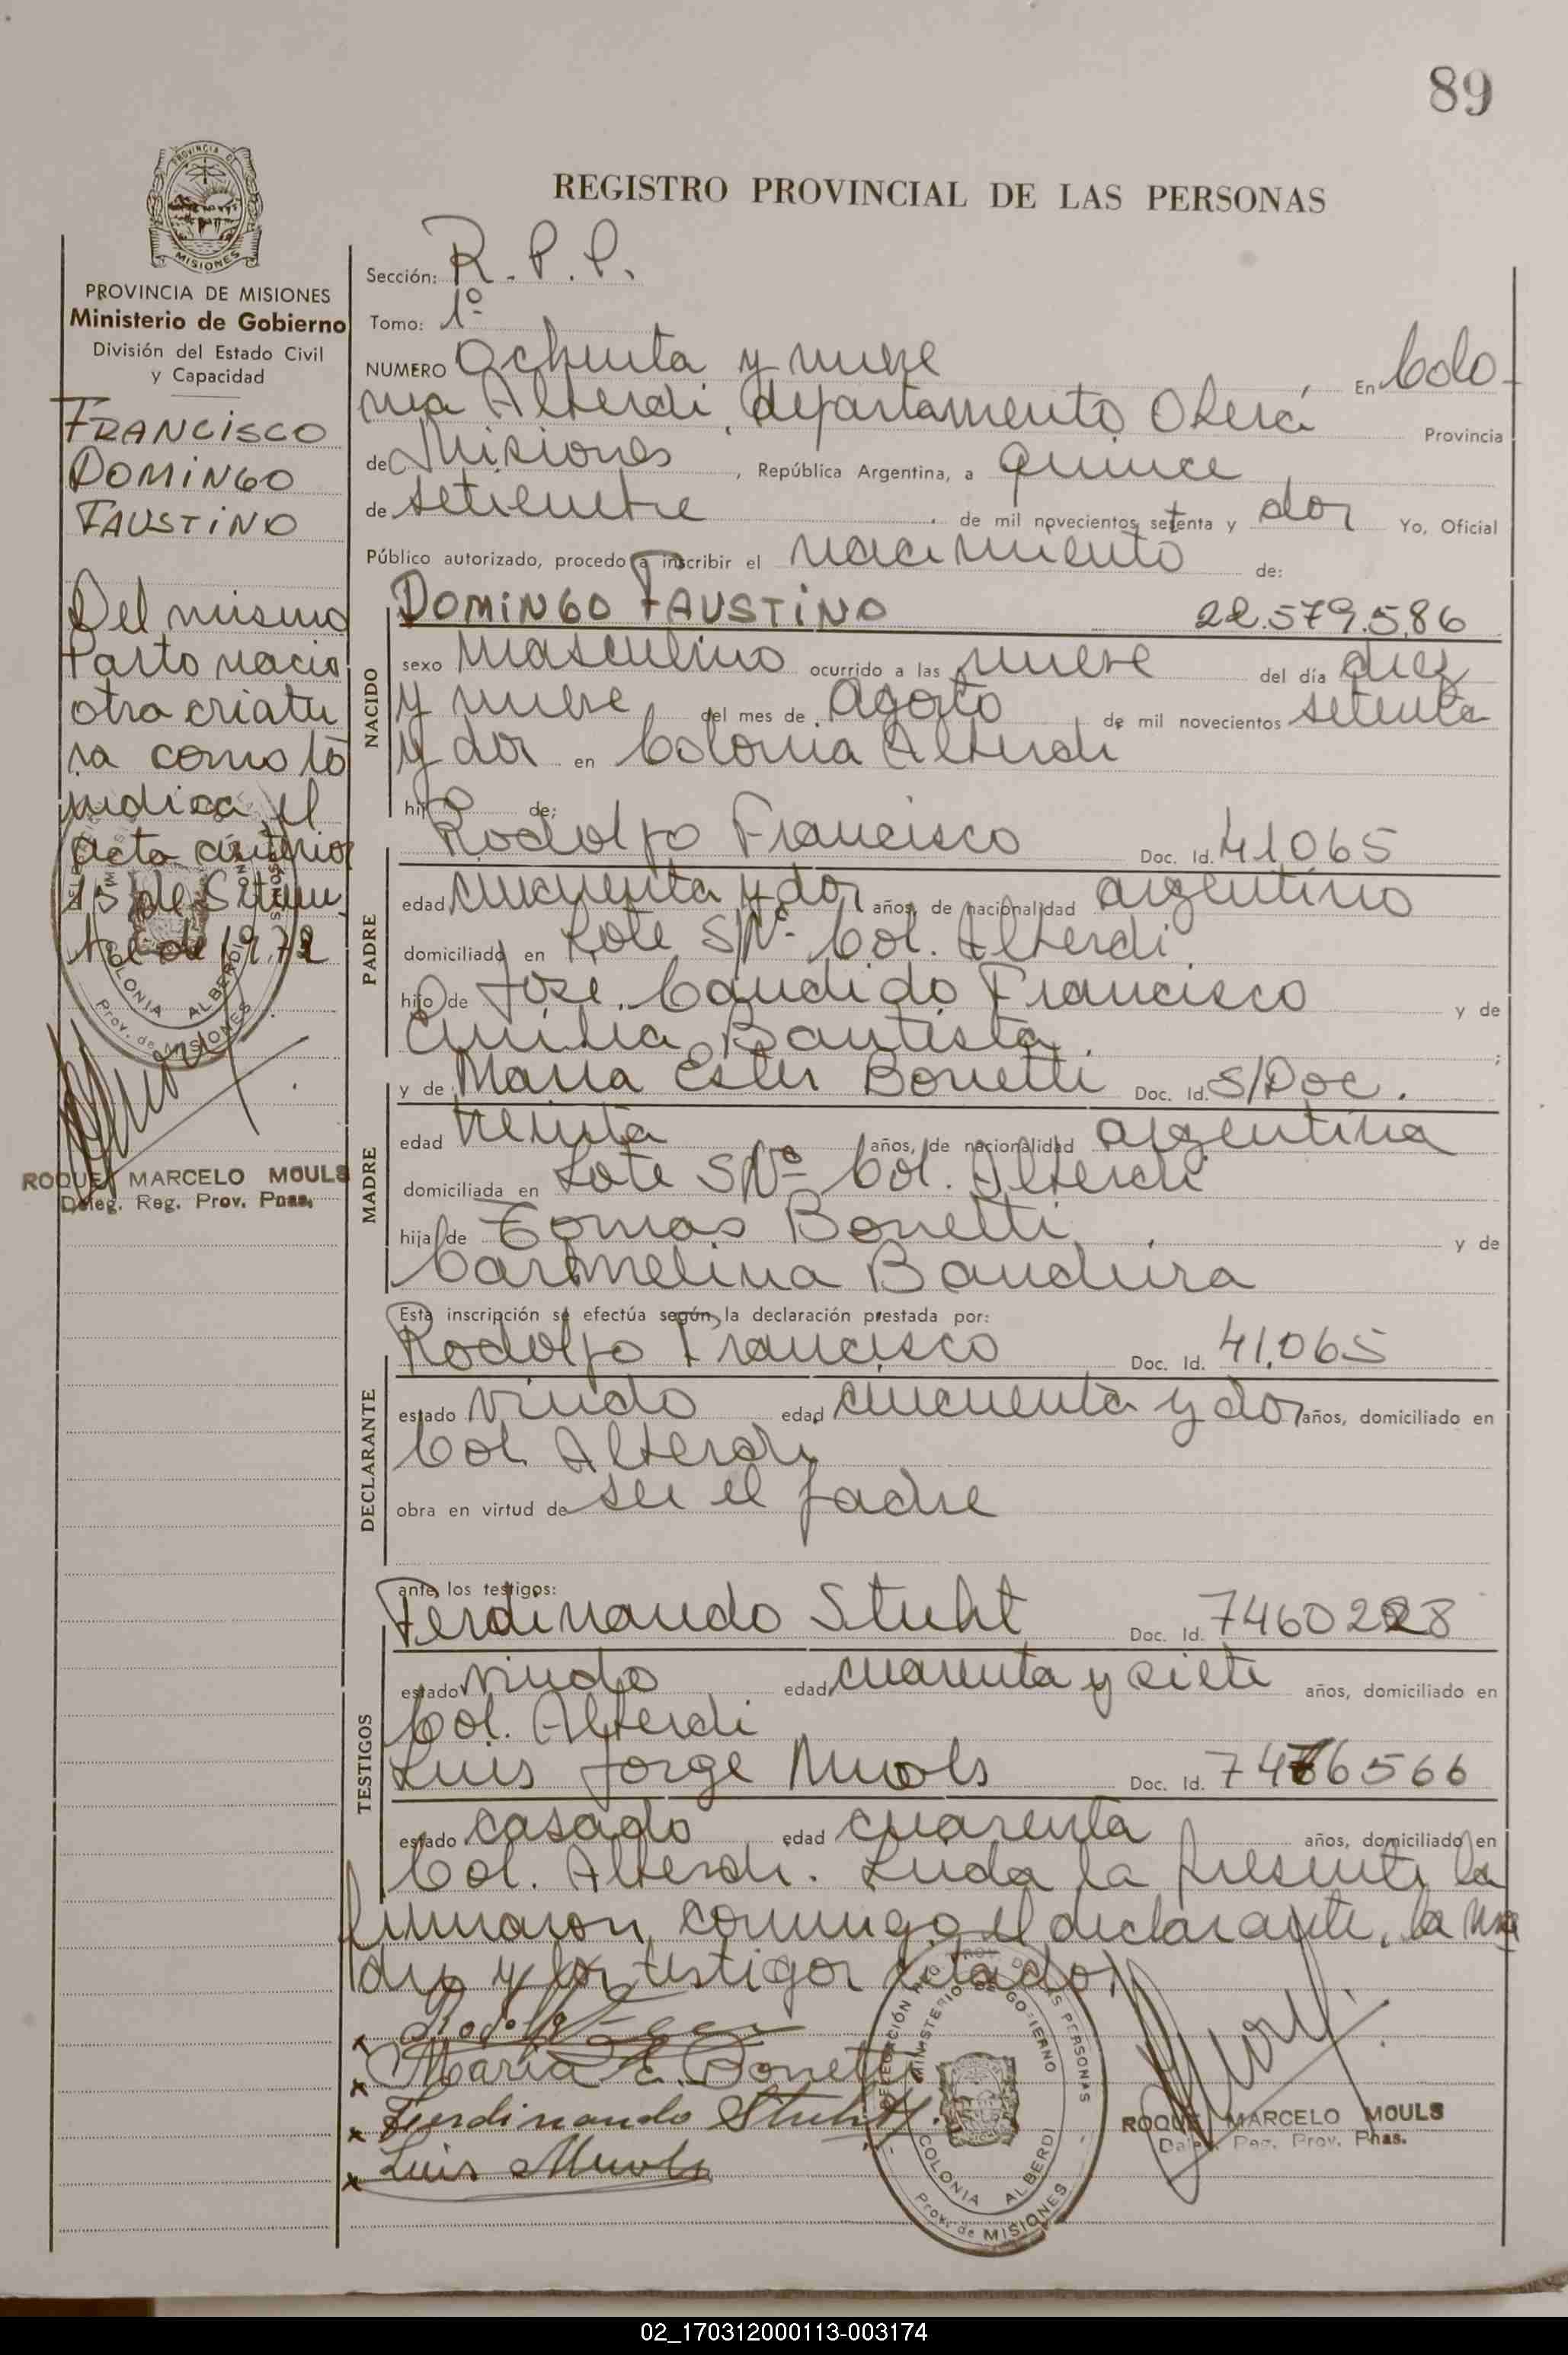 89
REGISTRO PROVINCIAL DE LAS PERSONAS
PROVINCIA DE MISIONES
PROVINCIA DE MISIONES
Ministerio de Gobierno
División del Estado Civil
y Capacidad
FRANCISCO
DOMINGO
FAUSTINO
Del mismo
Parto nacio
otra criatu
ra como lo
indica el
acta anterior
15 de Setiem
bre de 1972
COLONIA ALBERDI
Prov. de MISIONES
ROQUE MARCELO MOULS
Deleg. Reg. Prov. Pnas.
Sección: R. P. P.
Tomo: 1º
NUMERO Ochenta y nueve En Colo
nia Alberdi, departamento Oberá Provincia
de Misiones, República Argentina, a quince
de setiembre de mil novecientos setenta y dos Yo, Oficial
Público autorizado, procedo a inscribir el nacimiento de:
NACIDO
DOMINGO FAUSTINO 22.579.586
sexo masculino ocurrido a las nueve del día diez
y nueve del mes de Agosto de mil novecientos setenta
y dos en Colonia Alberdi
hijo de:
PADRE
Rodolfo Francisco Doc. Id. 41065
edad cincuenta y dos años, de nacionalidad argentino
domiciliado en Lote S/Nº Col. Alberdi
hijo de José Candido Francisco y de
Emilia Bautista ;
MADRE
y de Maria Ester Bonetti Doc. Id. S/Doc.
edad treinta años, de nacionalidad argentina
domiciliada en Lote S/Nº Col. Alberdi
hija de Tomas Bonetti y de
Carmelina Bandeira
Esta inscripción se efectúa según la declaración prestada por:
DECLARANTE
Rodolfo Francisco Doc. Id. 41.065
estado viudo edad cincuenta y dos años, domiciliado en
Col. Alberdi
obra en virtud de ser el padre
ante los testigos:
TESTIGOS
Ferdinando Stuht Doc. Id. 7460228
estado viudo edad cuarenta y siete años, domiciliado en
Col. Alberdi
Luis Jorge Muols Doc. Id. 7476566
estado casado edad cuarenta años, domiciliado en
Col. Alberdi. Leida la presente la
firmaron conmigo el declarante, la ma
dre y los testigos citados
Maria E. Bonetti
Ferdinando Stuht
Luis Muols
DELEGACIÓN REG. PROV. DE LAS PERSONAS
MINISTERIO DE GOBIERNO
COLONIA ALBERDI
Prov. de MISIONES
ROQUE MARCELO MOULS
Deleg. Reg. Prov. Pnas.
02_170312000113-003174